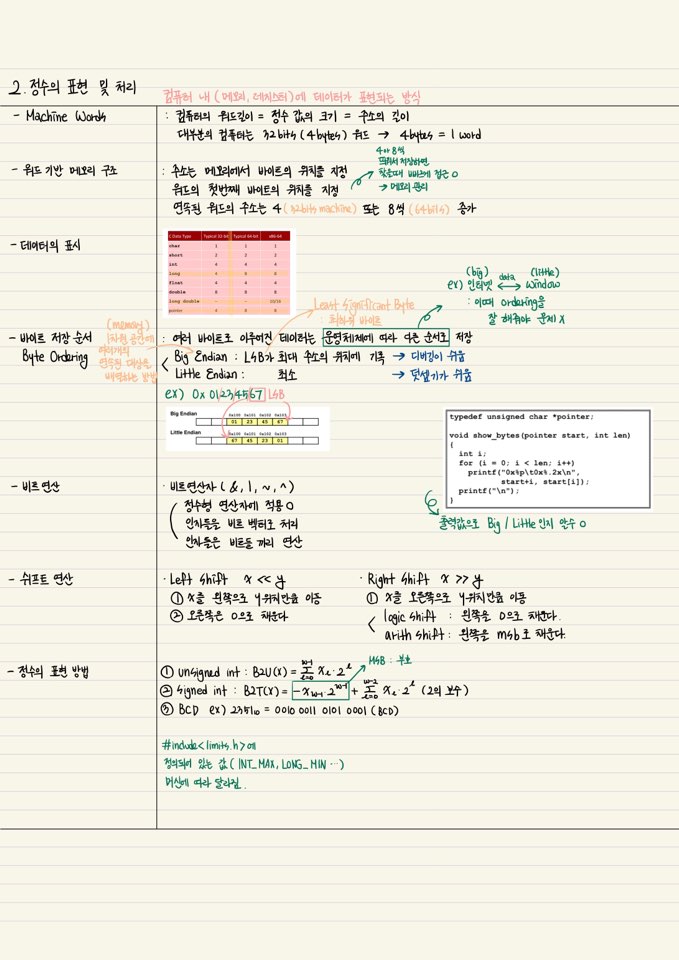 2. 정수의 표현 및 처리
컴퓨터 내 (메모리, 레지스터)에 데이터가 표현되는 방식
- Machine Words
: 컴퓨터의 워드길이 = 정수 값의 크기 = 주소의 길이
대부분의 컴퓨터는 32bits (4bytes) 워드 → 4bytes = 1 word
- 워드 기반 메모리 구조
: 주소는 메모리에서 바이트의 위치를 지정
워드의 첫번째 바이트의 위치를 지정
연속된 워드의 주소는 4 (32bits machine) 또는 8씩 (64bits) 증가
4 or 8씩
띄워서 저장하면
찾을때 빠르게 접근 O
→ 메모리 관리
- 데이터의 표시
C Data Type Typical 32-bit Typical 64-bit x86-64
char 1 1 1
short 2 2 2
int 4 4 4
long 4 8 8
float 4 4 4
double 8 8 8
long double - - 10/16
pointer 4 8 8
(big) data (little)
ex) 인터넷 ↔ window
: 이때 ordering을
잘 해줘야 문제 X
Least Significant Byte
: 최하위 바이트
- 바이트 저장 순서
Byte Ordering
(memory)
1차원 공간에
여러개의
연속된 대상을
배열하는 방법
: 여러 바이트로 이루어진 데이터는 운영체제에 따라 다른 순서로 저장
Big Endian : LSB가 최대 주소의 위치에 기록 → 디버깅이 쉬움
Little Endian : 최소 → 덧셈기가 쉬움
ex) 0x 01234567 LSB
Big Endian
0x100 0x101 0x102 0x103
01 23 45 67
Little Endian
0x100 0x101 0x102 0x103
67 45 23 01
typedef unsigned char *pointer;
void show_bytes(pointer start, int len)
{
int i;
for (i = 0; i < len; i++)
printf("0x%p\t0x%.2x\n",
start+i, start[i]);
printf("\n");
}
출력값으로 Big / Little인지 알수 O
- 비트연산
· 비트연산자 ( &, |, ~, ^ )
정수형 연산자에 적용 O
인자들을 비트 벡터로 처리
인자들은 비트들 끼리 연산
- 쉬프트 연산
· Left shift x << y
① x를 왼쪽으로 y위치만큼 이동
② 오른쪽은 0으로 채운다.
· Right shift x >> y
① x를 오른쪽으로 y위치만큼 이동
logic shift : 왼쪽을 0으로 채운다.
arith shift : 왼쪽을 msb로 채운다.
- 정수의 표현 방법
MSB : 부호
① unsigned int : B2U(X) = Σ_{i=0}^{w-1} x_i · 2^i
② signed int : B2T(X) = -x_{w-1} · 2^{w-1} + Σ_{i=0}^{w-2} x_i · 2^i (2의 보수)
③ BCD ex) 2351₁₀ = 0010 0011 0101 0001 (BCD)
#include<limits.h>에
정의되어 있는 값 ( INT_MAX, LONG_MIN ··· )
머신에 따라 달라짐.